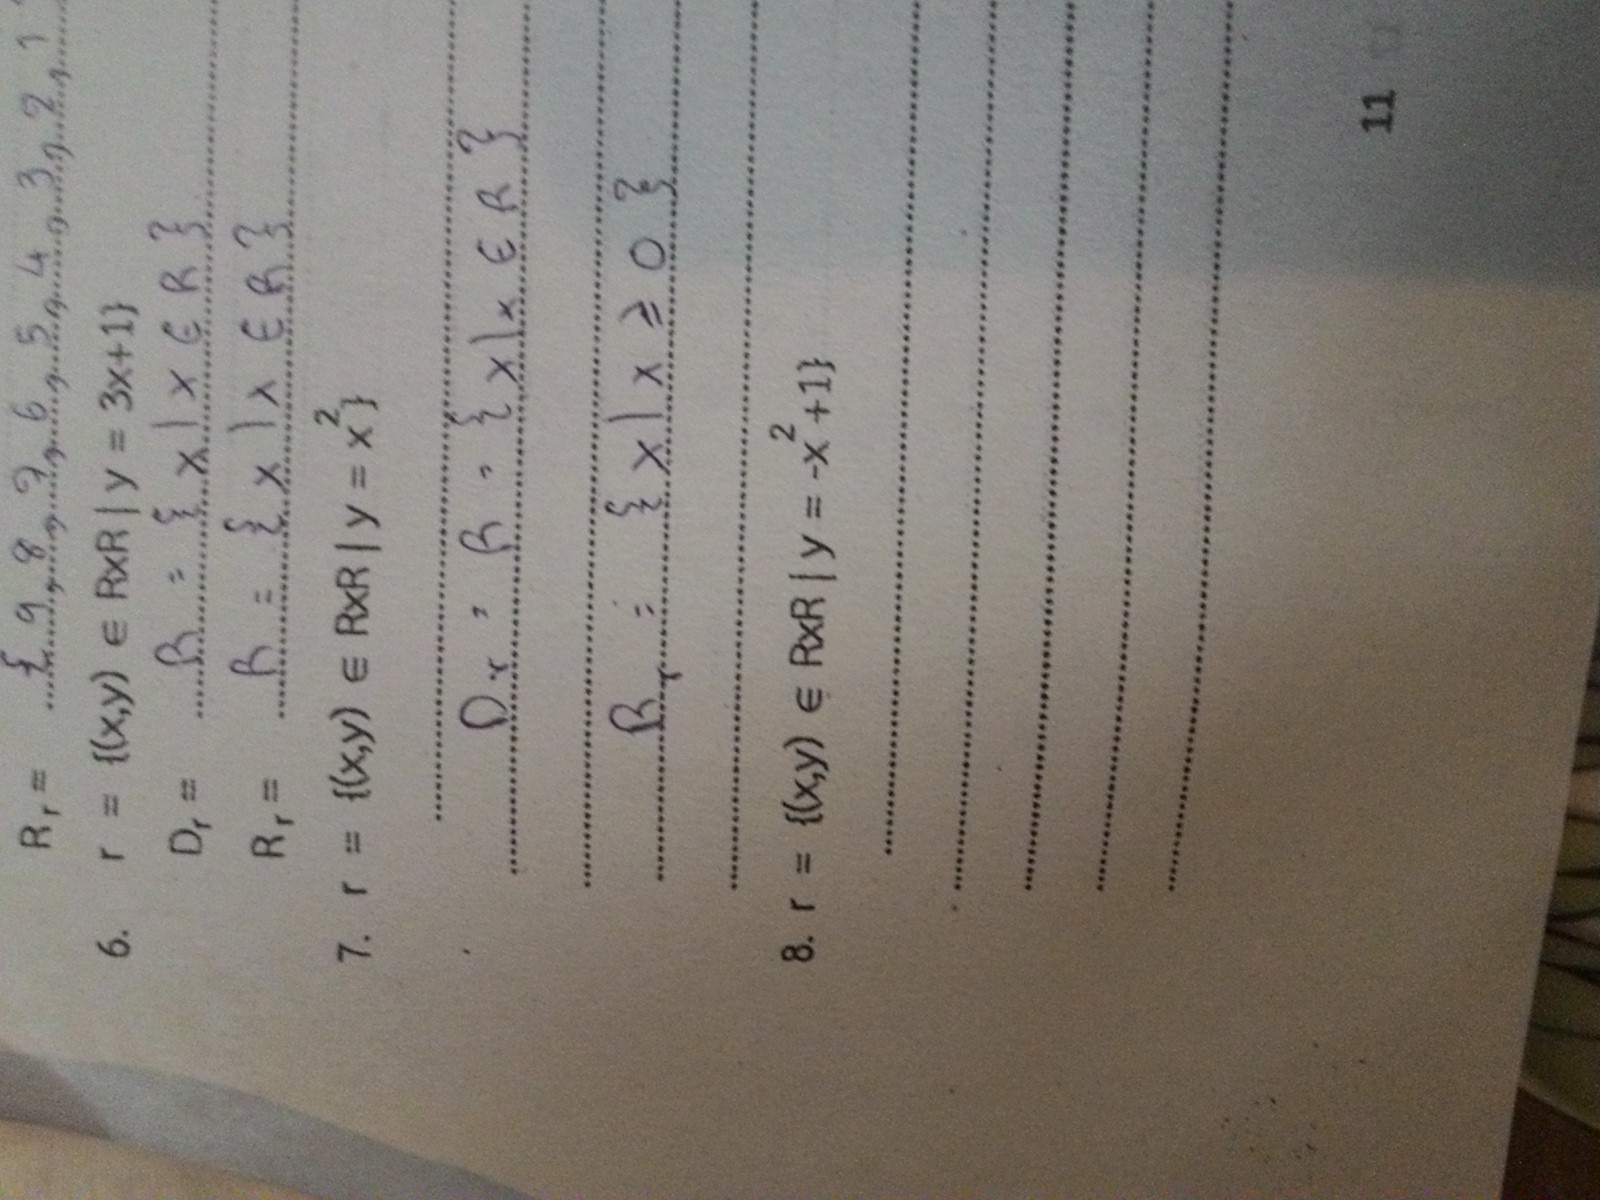 Rᵣ = {9, 8, 7, 6, 5, 4, 3, 2, 1
6. r = {(x,y) ∈ RxR | y = 3x+1}
Dᵣ = R = {x | x ∈ R}
Rᵣ = R = {x | x ∈ R}
7. r = {(x,y) ∈ RxR | y = x²}
Dᵣ = R = {x | x ∈ R}
Rᵣ = {x | x ≥ 0}
8. r = {(x,y) ∈ RxR | y = -x²+1}
11